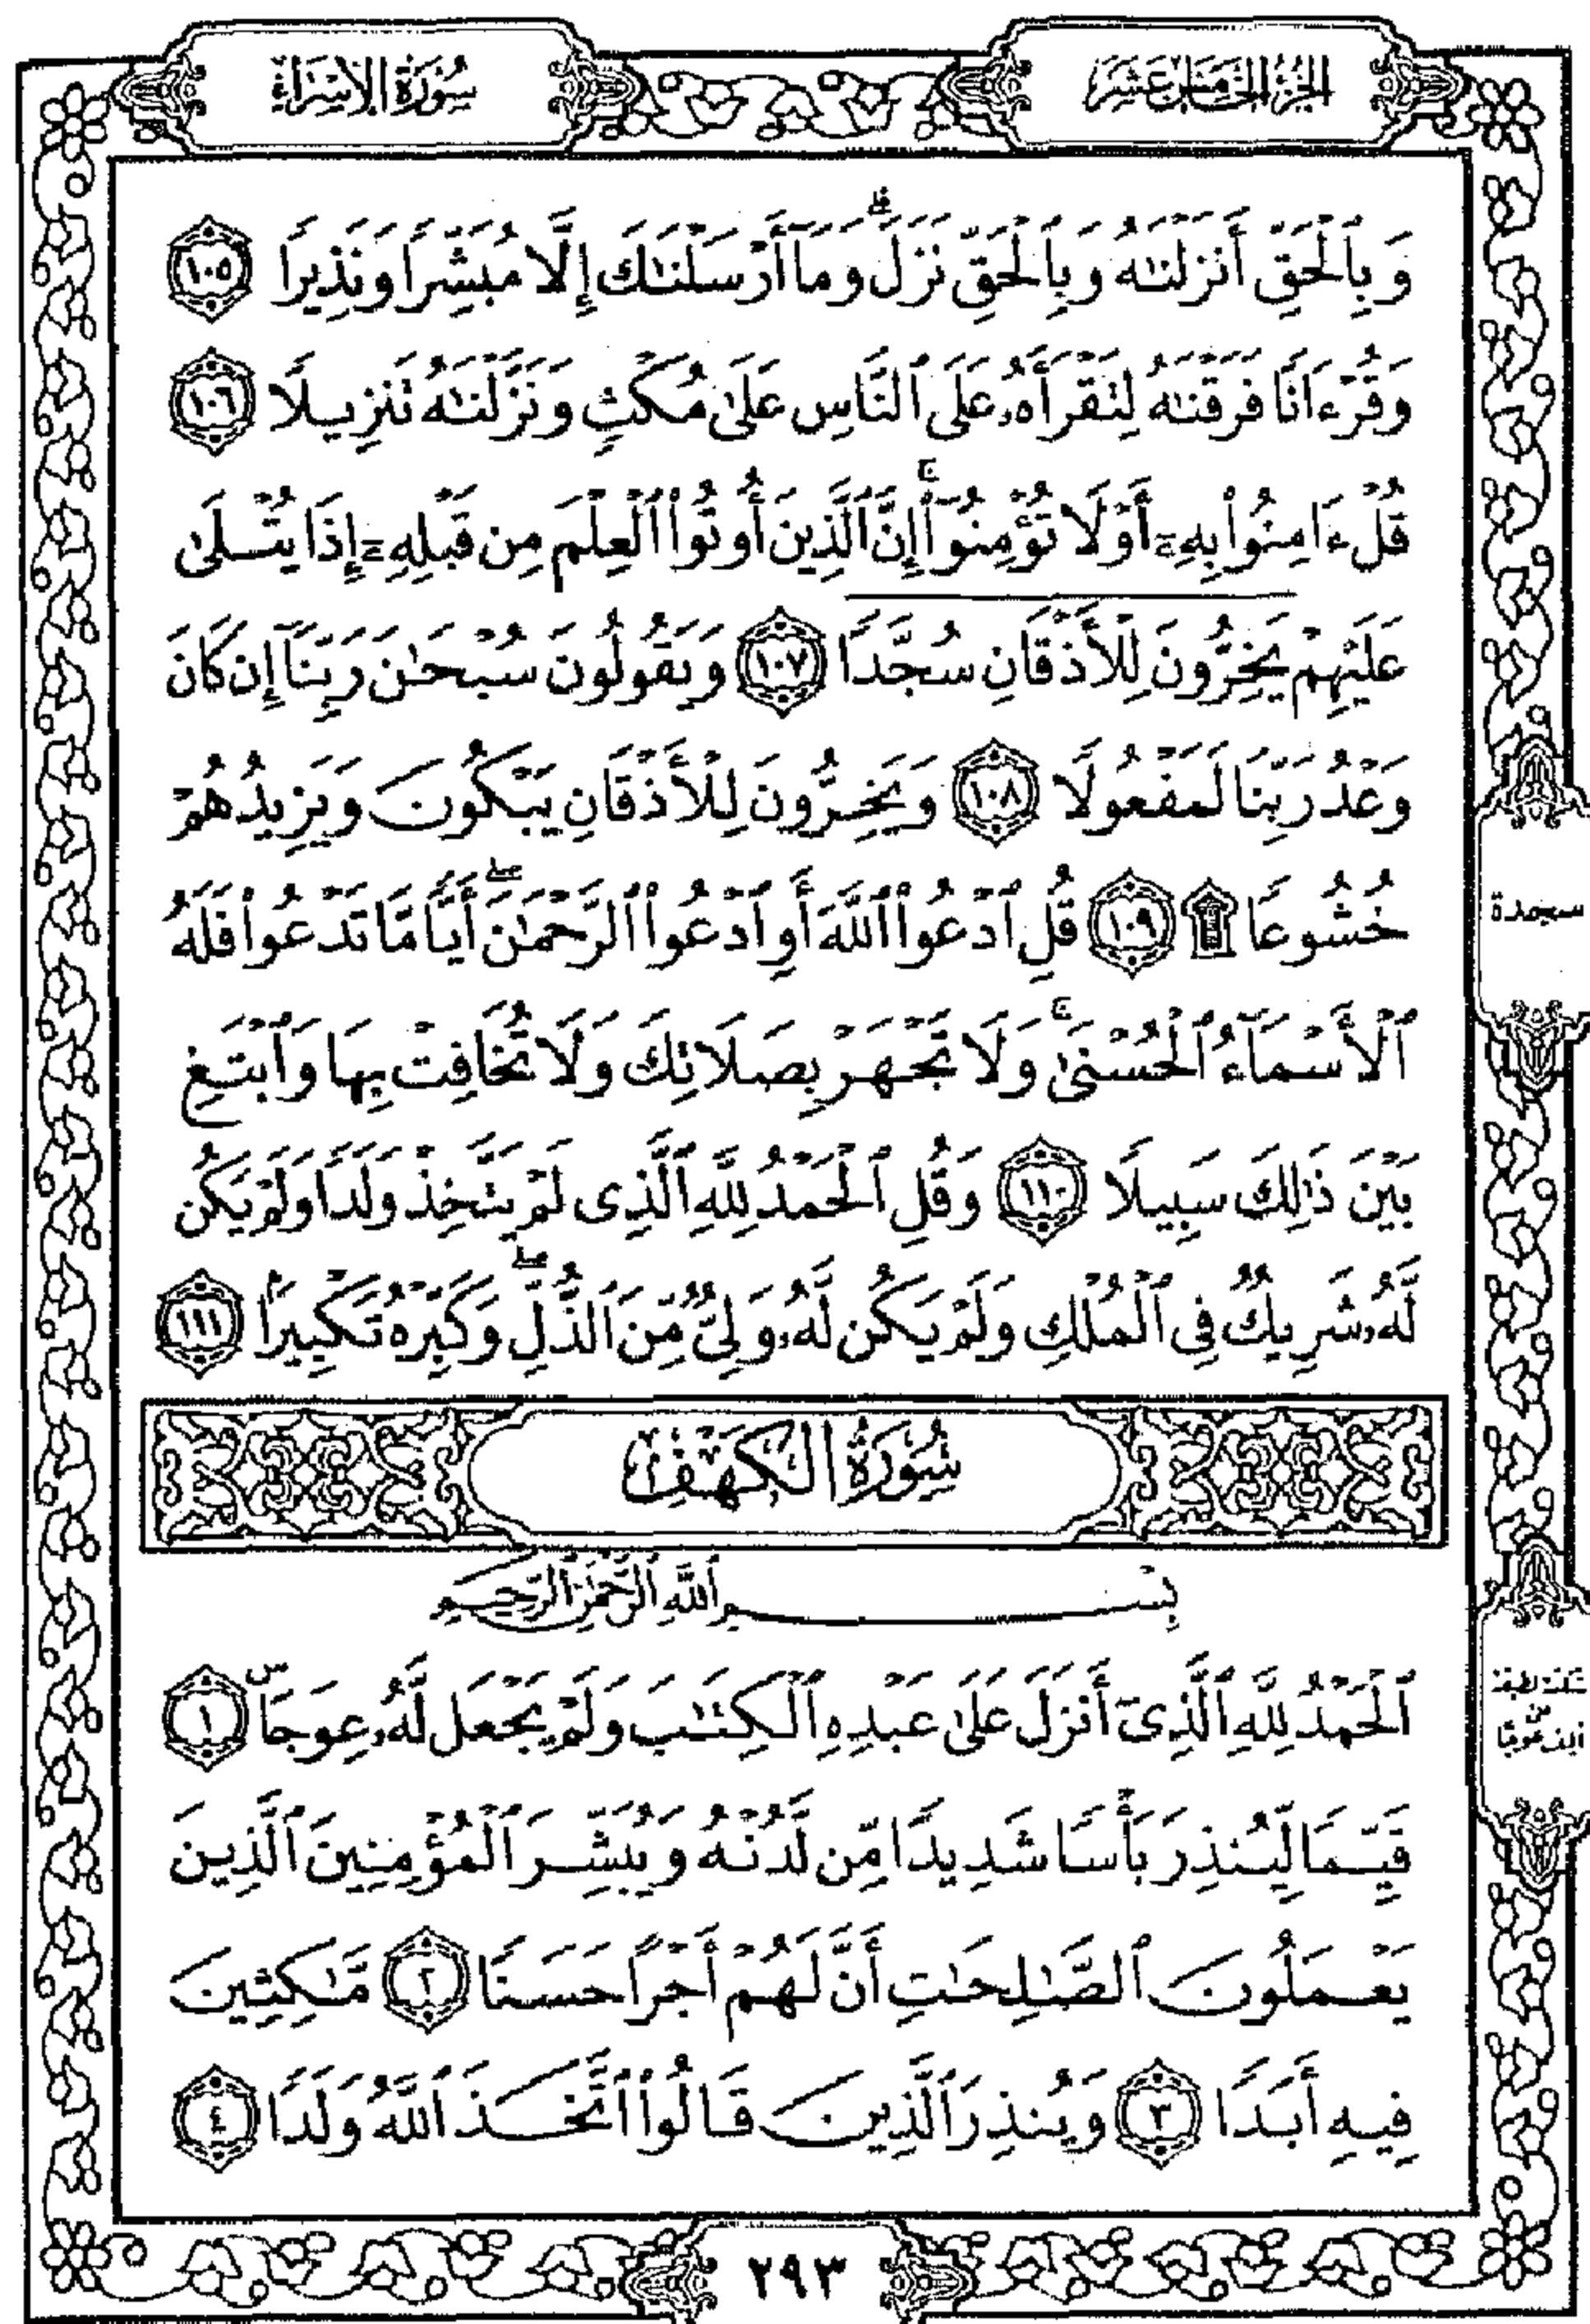 الجزء الخامس عشر
سورة الإسراء
وَبِٱلْحَقِّ أَنزَلْنَٰهُ وَبِٱلْحَقِّ نَزَلَ ۗ وَمَآ أَرْسَلْنَٰكَ إِلَّا مُبَشِّرًا وَنَذِيرًا ١٠٥
وَقُرْءَانًا فَرَقْنَٰهُ لِتَقْرَأَهُۥ عَلَى ٱلنَّاسِ عَلَىٰ مُكْثٍ وَنَزَّلْنَٰهُ تَنزِيلًا ١٠٦
قُلْ ءَامِنُوا۟ بِهِۦٓ أَوْ لَا تُؤْمِنُوٓا۟ ۚ إِنَّ ٱلَّذِينَ أُوتُوا۟ ٱلْعِلْمَ مِن قَبْلِهِۦٓ إِذَا يُتْلَىٰ
عَلَيْهِمْ يَخِرُّونَ لِلْأَذْقَانِ سُجَّدًا ١٠٧ وَيَقُولُونَ سُبْحَٰنَ رَبِّنَآ إِن كَانَ
وَعْدُ رَبِّنَا لَمَفْعُولًا ١٠٨ وَيَخِرُّونَ لِلْأَذْقَانِ يَبْكُونَ وَيَزِيدُهُمْ
خُشُوعًا ۩ ١٠٩ قُلِ ٱدْعُوا۟ ٱللَّهَ أَوِ ٱدْعُوا۟ ٱلرَّحْمَٰنَ ۖ أَيًّا مَّا تَدْعُوا۟ فَلَهُ
ٱلْأَسْمَآءُ ٱلْحُسْنَىٰ ۚ وَلَا تَجْهَرْ بِصَلَاتِكَ وَلَا تُخَافِتْ بِهَا وَٱبْتَغِ
بَيْنَ ذَٰلِكَ سَبِيلًا ١١٠ وَقُلِ ٱلْحَمْدُ لِلَّهِ ٱلَّذِى لَمْ يَتَّخِذْ وَلَدًا وَلَمْ يَكُن
لَّهُۥ شَرِيكٌ فِى ٱلْمُلْكِ وَلَمْ يَكُن لَّهُۥ وَلِىٌّ مِّنَ ٱلذُّلِّ ۖ وَكَبِّرْهُ تَكْبِيرًۢا ١١١
سجدة
سُورَةُ الكَهْفِ
بِسْمِ ٱللَّهِ ٱلرَّحْمَٰنِ ٱلرَّحِيمِ
ٱلْحَمْدُ لِلَّهِ ٱلَّذِىٓ أَنزَلَ عَلَىٰ عَبْدِهِ ٱلْكِتَٰبَ وَلَمْ يَجْعَل لَّهُۥ عِوَجَاۜ ١
قَيِّمًا لِّيُنذِرَ بَأْسًا شَدِيدًا مِّن لَّدُنْهُ وَيُبَشِّرَ ٱلْمُؤْمِنِينَ ٱلَّذِينَ
يَعْمَلُونَ ٱلصَّٰلِحَٰتِ أَنَّ لَهُمْ أَجْرًا حَسَنًا ٢ مَّٰكِثِينَ
فِيهِ أَبَدًا ٣ وَيُنذِرَ ٱلَّذِينَ قَالُوا۟ ٱتَّخَذَ ٱللَّهُ وَلَدًا ٤
سكتة لطيفة
ألف عوجا
٢٩٣